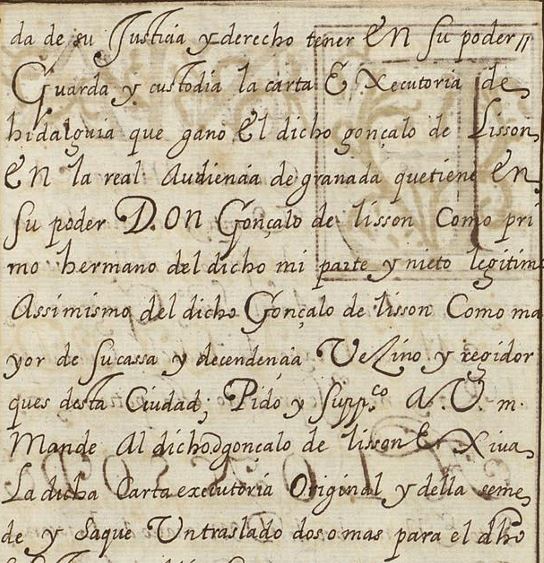 da de su Justicia y derecho tener En su poder //
Guarda y custodia la carta Executoria de
hidalguia que gano El dicho gonçalo de Lisson
En la real Audiencia de granada quetiene en
su poder Don Gonçalo de lisson Como pri
mo hermano del dicho mi parte y nieto legitimo
Assimismo del dicho Gonçalo de lisson Como ma
yor de sucassa y decendencia Vezino y regidor
ques desta Ciudad, Pido y supp.co A. V. m.
Mande Al dichodgoncalo de lisson Exiva
La dicha Carta executoria Original y della seme
de y Saque Untraslado dos o mas para el dho